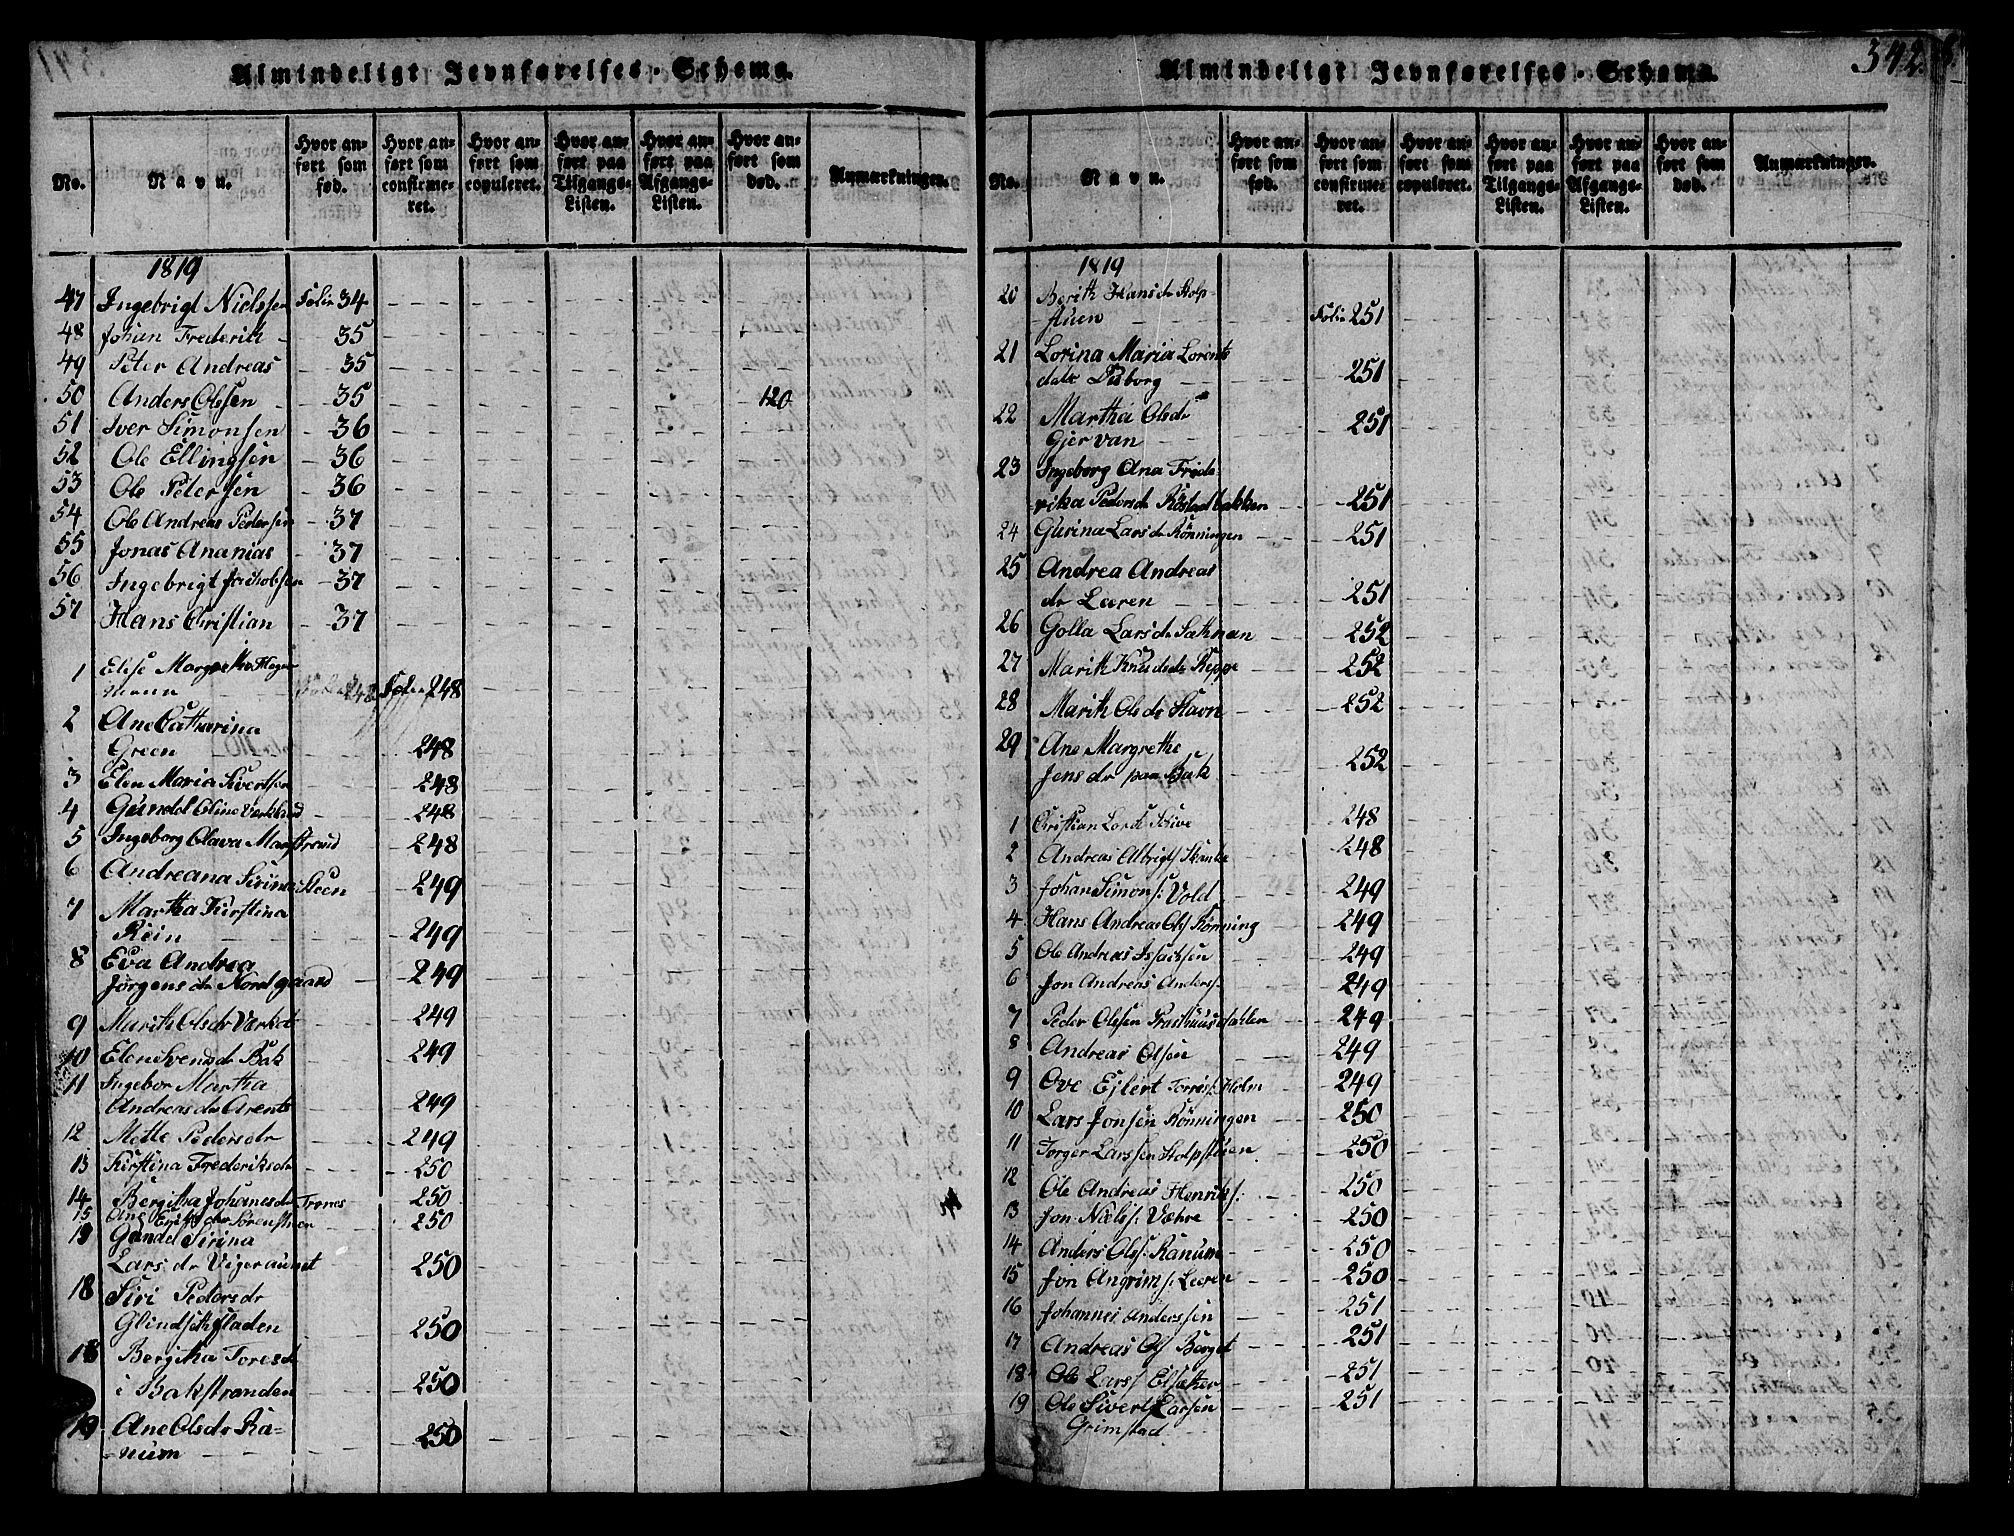 Almindeligt Jevnførelses-Schema.
No.
Navn.
Hvor an-
ført som
fød.
Hvor an-
ført som
confirme-
ret.
Hvor an-
ført som
copuleret.
Hvor an-
ført paa
Tilgangs-
Listen.
Hvor an-
ført paa
Afgangs-
Listen.
Hvor an-
ført som
død.
Anmærkninger.
1819
47 Ingebrigt Nielssen Folio 34
48 Johan Frederik 35
49 Peter Andreas 35
50 Anders Olssen 35 120
51 Iver Simonsen 36
52 Ole Ellingsen 36
53 Ole Petersen 36
54 Ole Andreas Pedersen 37
55 Jonas Ananias 37
56 Ingebrigt Jackobsen 37
57 Hans Christian 37
1 Elise Margrethe Hage
mann Folio 248
2 Ane Catharina
Green 248
3 Elen Maria Sivertsen 248
4 Gunild Oline 248
5 Ingeborg Olava Marstrand 248
6 Andreana Sirina Steen 249
7 Martha Kirstina
Rein 249
8 Eva Andrea
Jørgens dr Nordgaard 249
9 Marith Olsdr Værket 249
10 Elene Svensdr Bak 249
11 Ingebor Martha
Andreas dr Arents 249
12 Mette Pedersdr 249
13 Kirstina Frederiksdr 250
14 Bergitha Johanesdr Trones 250
15 Ane 250
Gundel Sirina
Lars dr Vigeraunet 250
18 Siri Pedersdr
250
Bergitha Toresd
i Bakstranden 250
19 Ane Olsdr Ra-
-num 250
342
Almindeligt Jevnførelses-Schema.
No.
Navn.
Hvor an-
ført som
fød.
Hvor an-
ført som
confirme-
ret.
Hvor an-
ført som
copuleret.
Hvor an-
ført paa
Tilgangs-
Listen.
Hvor an-
ført paa
Afgangs-
Listen.
Hvor an-
ført som
død.
Anmærkninger.
1819
20 Berith Hansdr Stolp-
stuen Folio 251
21 Lorina Maria Lorents
datr Disborg 251
22 Martha Olsdr
Gjervan 251
23 Ingeborg Ana Frede-
rika Pedersdr Röstadbakken 251
24 Gurina Lars dr Rönningen 251
25 Andrea Andreas
dr Leeren 251
26 Golla Larsdr Sætnan 252
27 Marith Knudsdr Reppe 252
28 Marith Olsdr Stavn 252
29 Ane Margrethe
Jensdr paa Bak 252
1 Christian Lorck Schive 248
2 Andreas Albrigt Skanke 248
3 Johan Simons: Vold 249
4 Hans Andreas Ols Rönning 249
5 Ole Andreas Issachsen 249
6 Jon Andreas Anders: 249
7 Peder Olssen Prosthuusdahlen 249
8 Andreas Olsen 249
9 Ove Ejlert Torris: Holm 249
10 Lars Jonsen Rönningen 250
11 Torger Larssen Stolpstuen 250
12 Ole Andreas Henriks: 250
13 Jon Niels: Væhre 250
14 Anders Ols: Ranum 250
15 Jon Angrims: Leeren 250
16 Johannes Anderssen 251
17 Andreas Ols Berget 251
18 Ole Lars: Elsæther 251
19 Ole Sivert Larsen 251
Grimstad